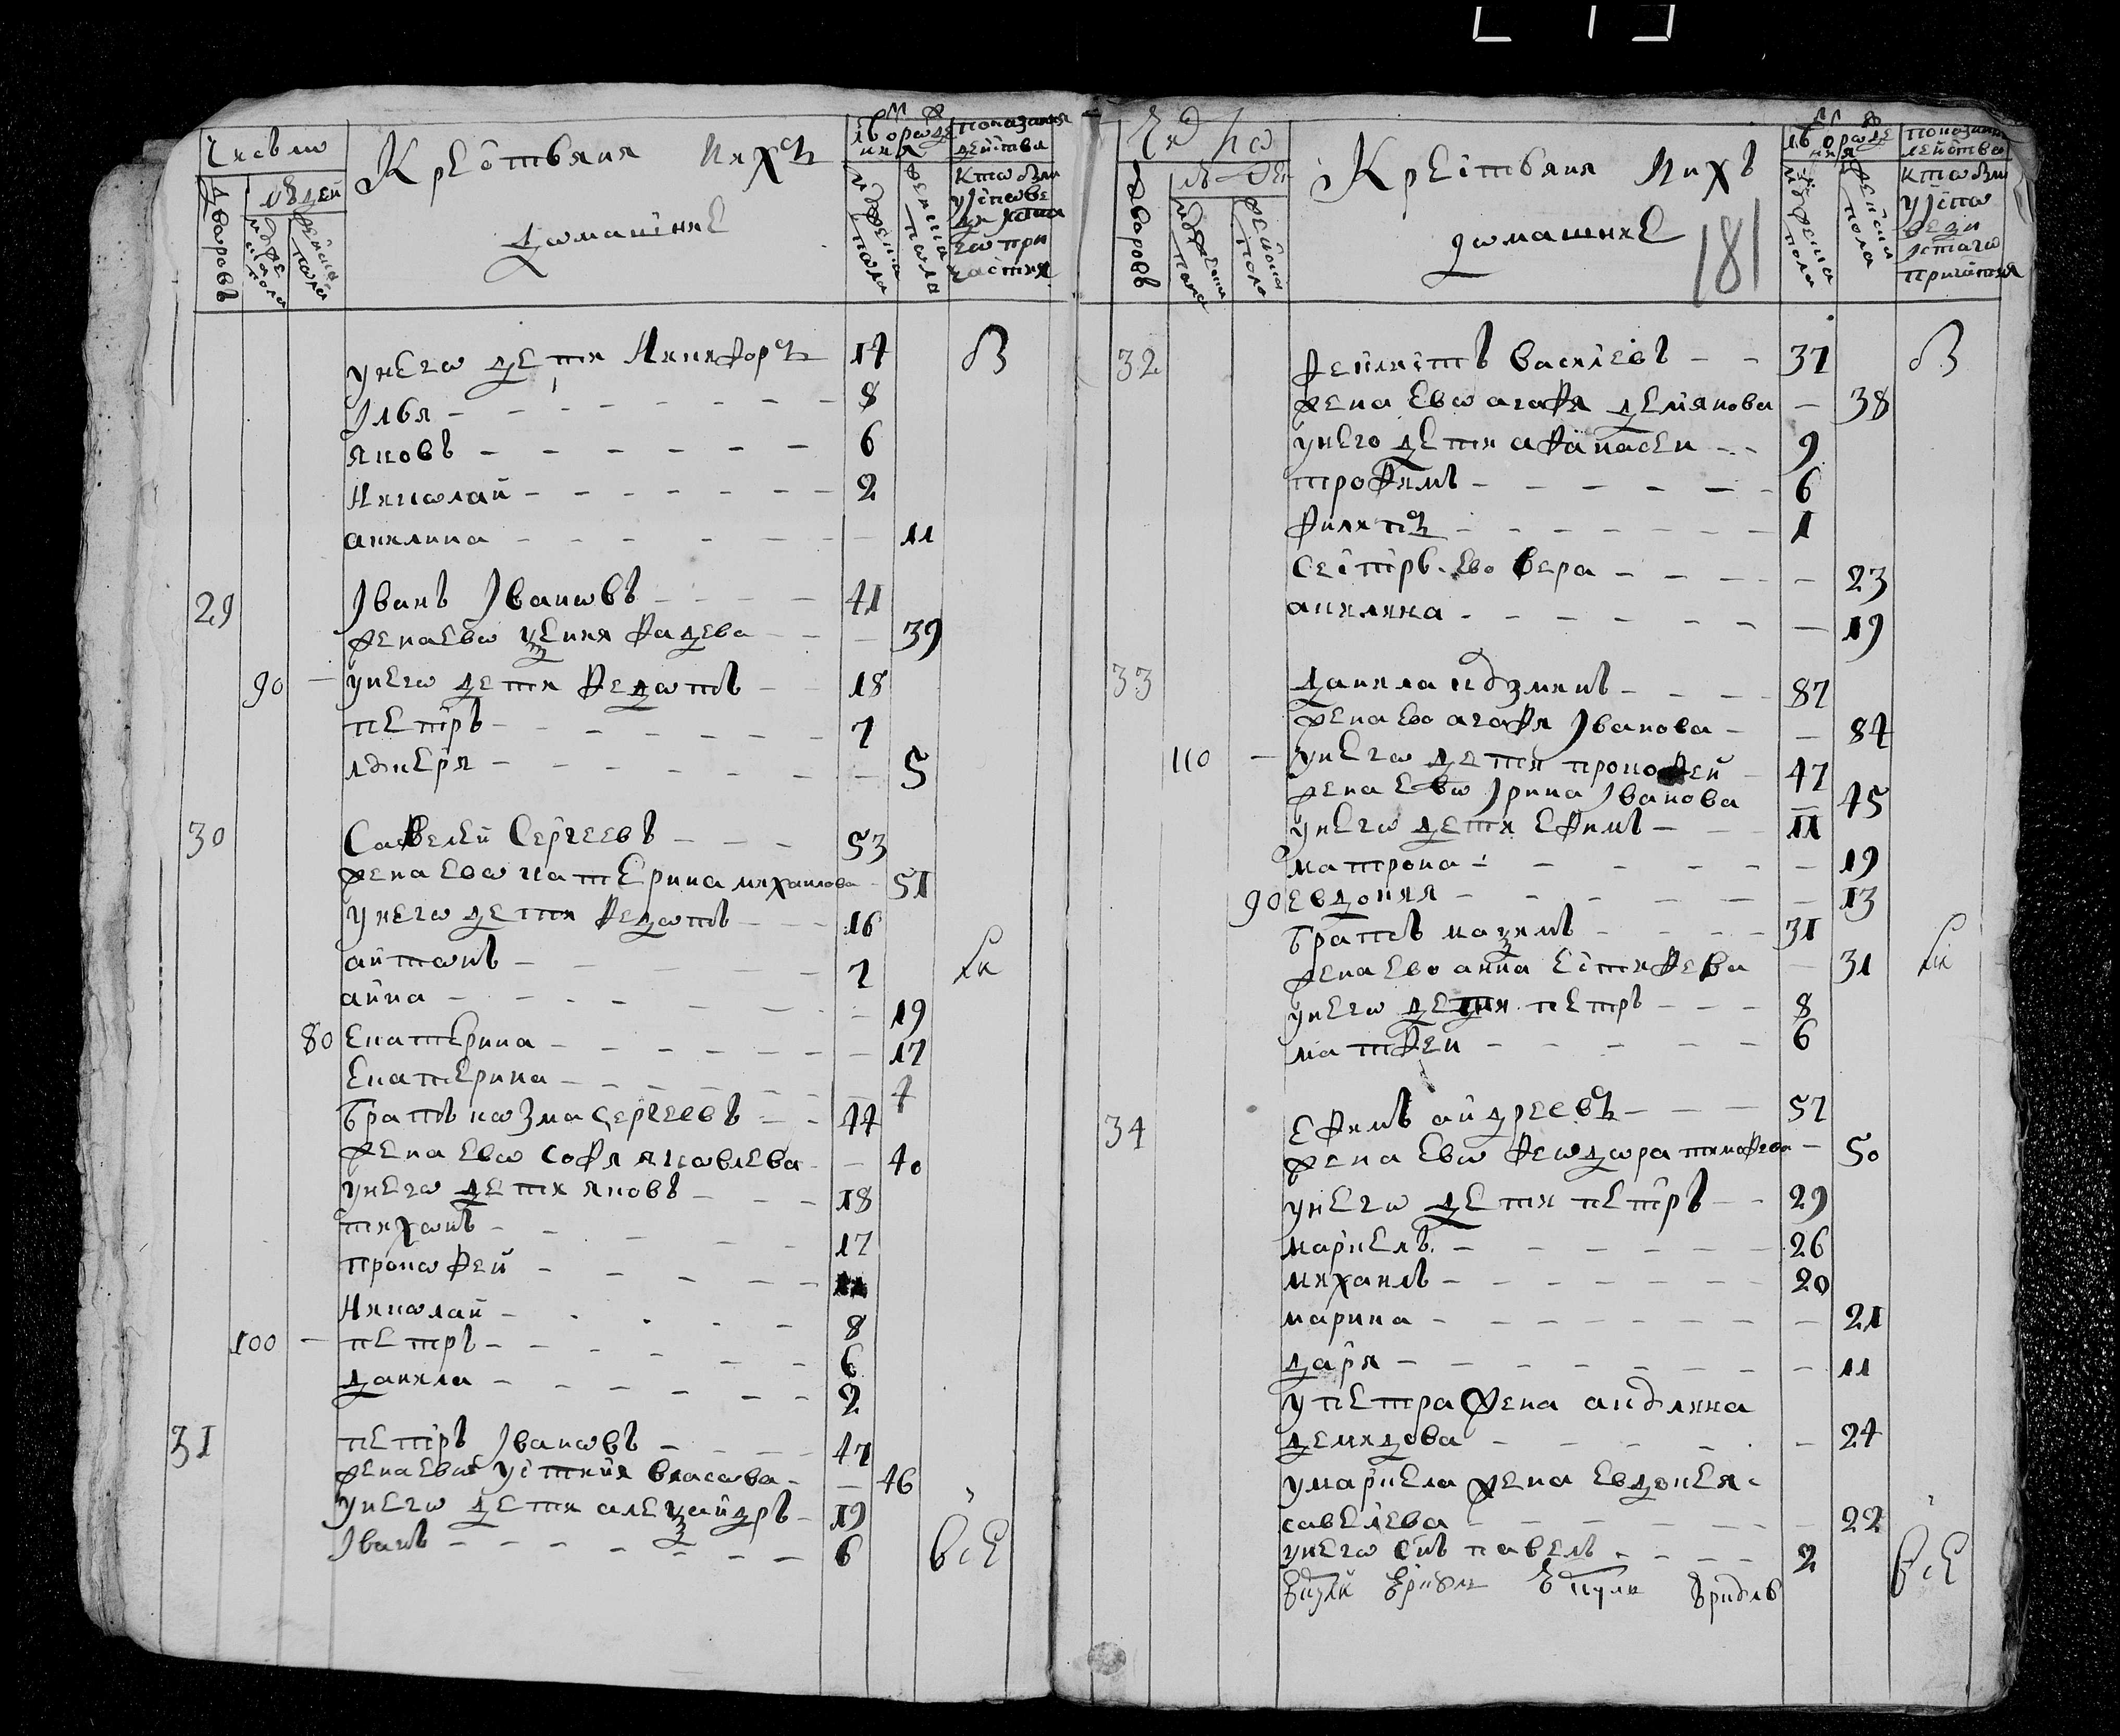 Число
Крестьяня ихъ
домашние
Дворовъ
людей
мужеска пола
женска пола
от рожде
ния
мужеска пола
женска пола
показания
действа
кто были
у испове
ди
при
частия
у него дети Никифоръ 14 В
Илья 8
яковъ 6
Николай 2
акилина 11
29 Иванъ Ивановъ 41
жена ево Ксения Фадева 39
90 у него дети Федотъ 18
петръ 7
лукеря 5
30 Савелей Сергеевъ 53
жена ево катерина михаилова 51
у него дети Федотъ 16
антонъ 7
анна 19
80 Екатерина 17
Екатерина 4
братъ козма сергеевъ 44
жена ево софя яковлева 40
у него дети яковъ 18
тихонъ 17
прокофей 11
Николай 8
100 петръ 6
данила 2
31 петръ Ивановъ 47
жена ево устиня власова 46
у него дети алеѯандръ 19
Иванъ 6 всЕ
Число
Крестьяня ихъ
домашние
181
Дворовъ
людей
мужеска пола
женска пола
от рожде
ния
мужеска пола
женска пола
показания
действа
кто были
у испо
веди
причастия
32 Феилистъ василевъ 37 В
жена ево агафя демянова 38
у него дети афанасеи 9
трофимъ 6
филипъ 1
сестръ ево вера 23
акилина 19
33 данила кузминъ 87
жена ево агафя Иванова 84
110 у него дети прокофей 47
жена ево Ирина Иванова 45
у него дети ефимъ 11
матрона 19
90 евдокия 13
братъ маѯимъ 31
жена ево анна естифева 31
у него дети петръ 8
матфеи 6
34 ефимъ андреевъ 57
жена ево Феодора тимофева 50
у него дети петръ 29
маркелъ 26
михаилъ 20
марина 21
даря 11
у петра жена акулина
демидова 24
у маркела жена евдокея
савелева 22
у него снъ павелъ 2 всЕ